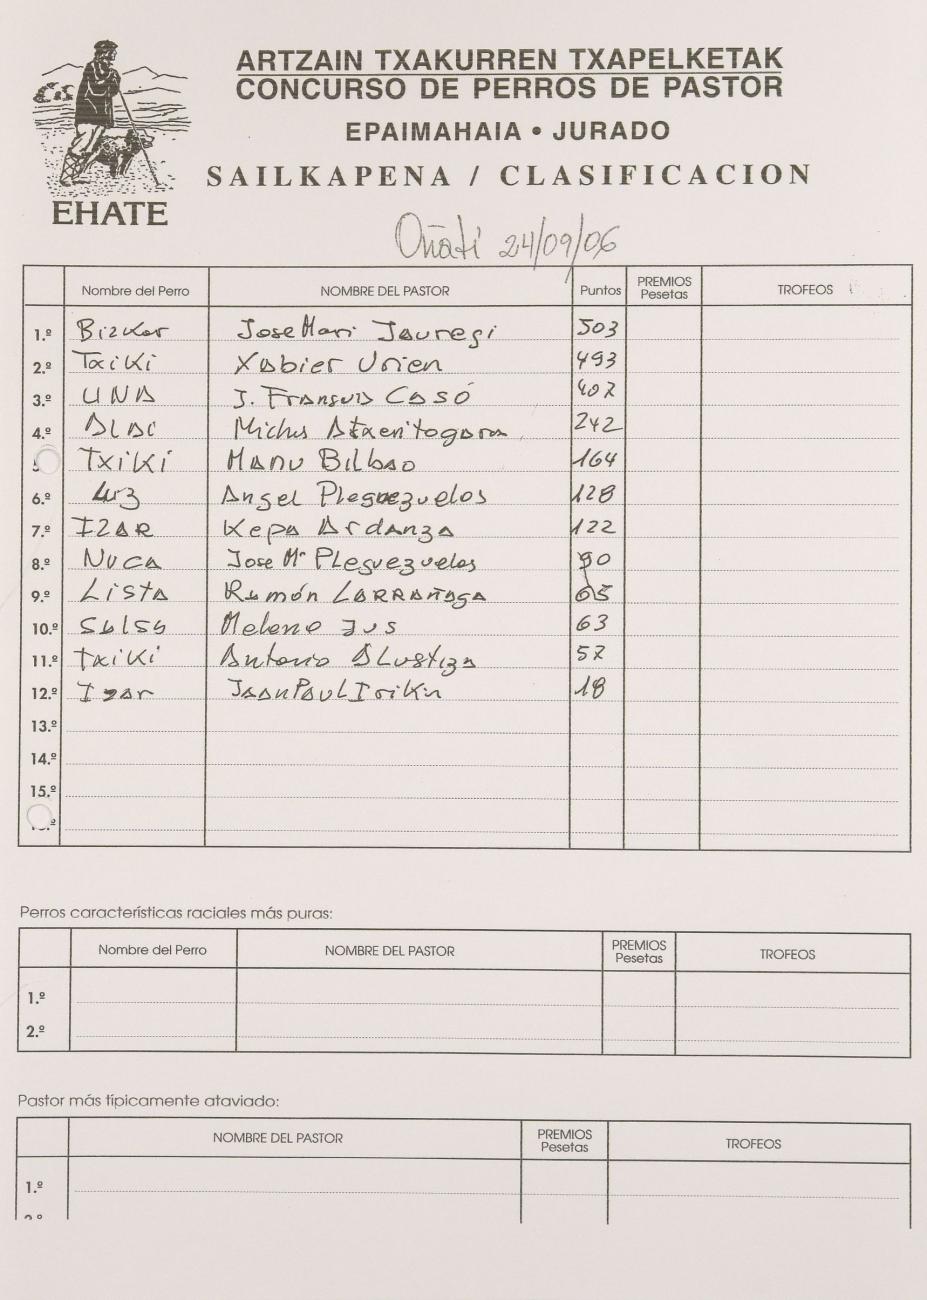 ARTZAIN TXAKURREN TXAPELKETAK
CONCURSO DE PERROS DE PASTOR
EPAIMAHAIA • JURADO
SAILKAPENA / CLASIFICACION
EHATE
Oñati 24/09/06
Nombre del Perro NOMBRE DEL PASTOR Puntos PREMIOS Pesetas TROFEOS
1.º Bizkor Jose Mari Jauregi 503
2.º Txiki Xabier Urien 493
3.º UNA J. Fransuis Casó 407
4.º Michel 242
TXIKI MANU Bilbao 164
6.º Luz Angel Pleguezuelos 128
7.º IZAR Kepa Ardanza 122
8.º NUCA Jose Mª Pleguezuelos 90
9.º LISTA Ramón LARRAÑAGA 65
10.º 63
11.º TxiKi Antonio Alustiza 57
12.º Izar JEAN PAUL 18
13.º
14.º
15.º
Perros características raciales más puras:
Nombre del Perro NOMBRE DEL PASTOR PREMIOS Pesetas TROFEOS
1.º
2.º
Pastor más típicamente ataviado:
NOMBRE DEL PASTOR PREMIOS Pesetas TROFEOS
1.º